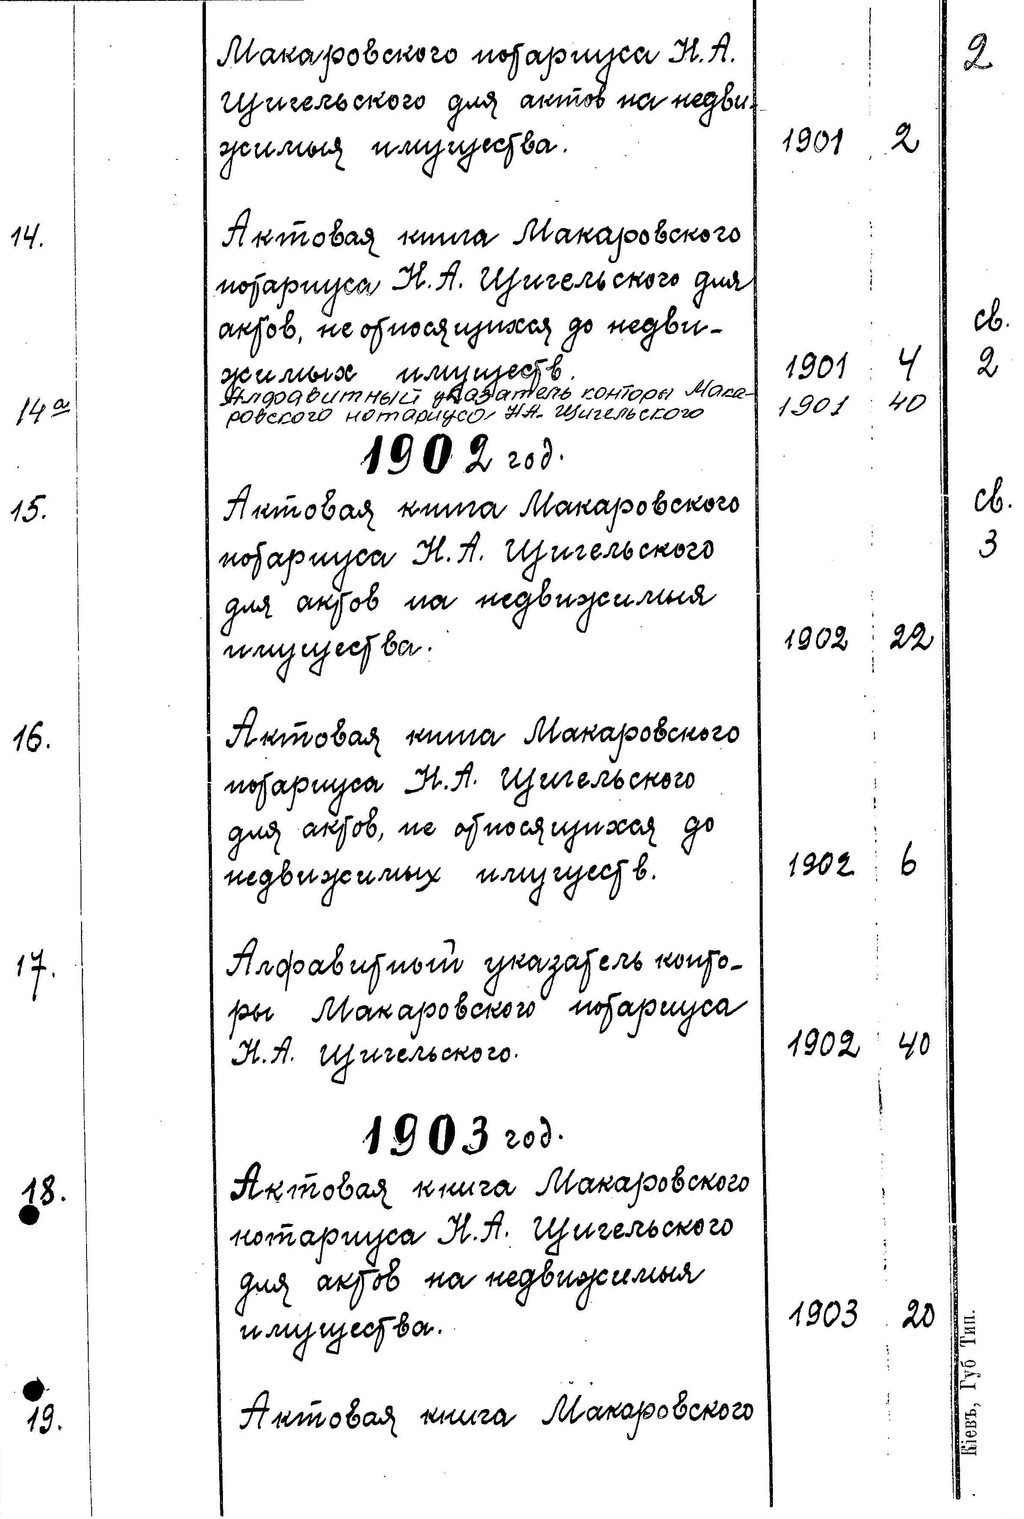 2
Макаровского нотариуса Н.А.
Щигельского для актов на недви-
жимыя имущества. 1901 2
14. Актовая книга Макаровского
нотариуса Н.А. Щигельского для
актов, не относящихся до недви- св.
жимых имуществ. 1901 4 2
14а Алфавитный указатель конторы Мака- 1901 40
ровского нотариуса Н.А. Щигельского
1902 год.
15. Актовая книга Макаровского св.
нотариуса Н.А. Щигельского 3
для актов на недвижимыя
имущества. 1902 22
16. Актовая книга Макаровского
нотариуса Н.А. Щигельского
для актов, не относящихся до
недвижимых имуществ. 1902 6
17. Алфавитный указатель конто-
ры Макаровского нотариуса
Н.А. Щигельского. 1902 40
1903 год.
18. Актовая книга Макаровского
нотариуса Н.А. Щигельского
для актов на недвижимыя
имущества. 1903 20
19. Актовая книга Макаровского
Кіевъ, Губ Тип.